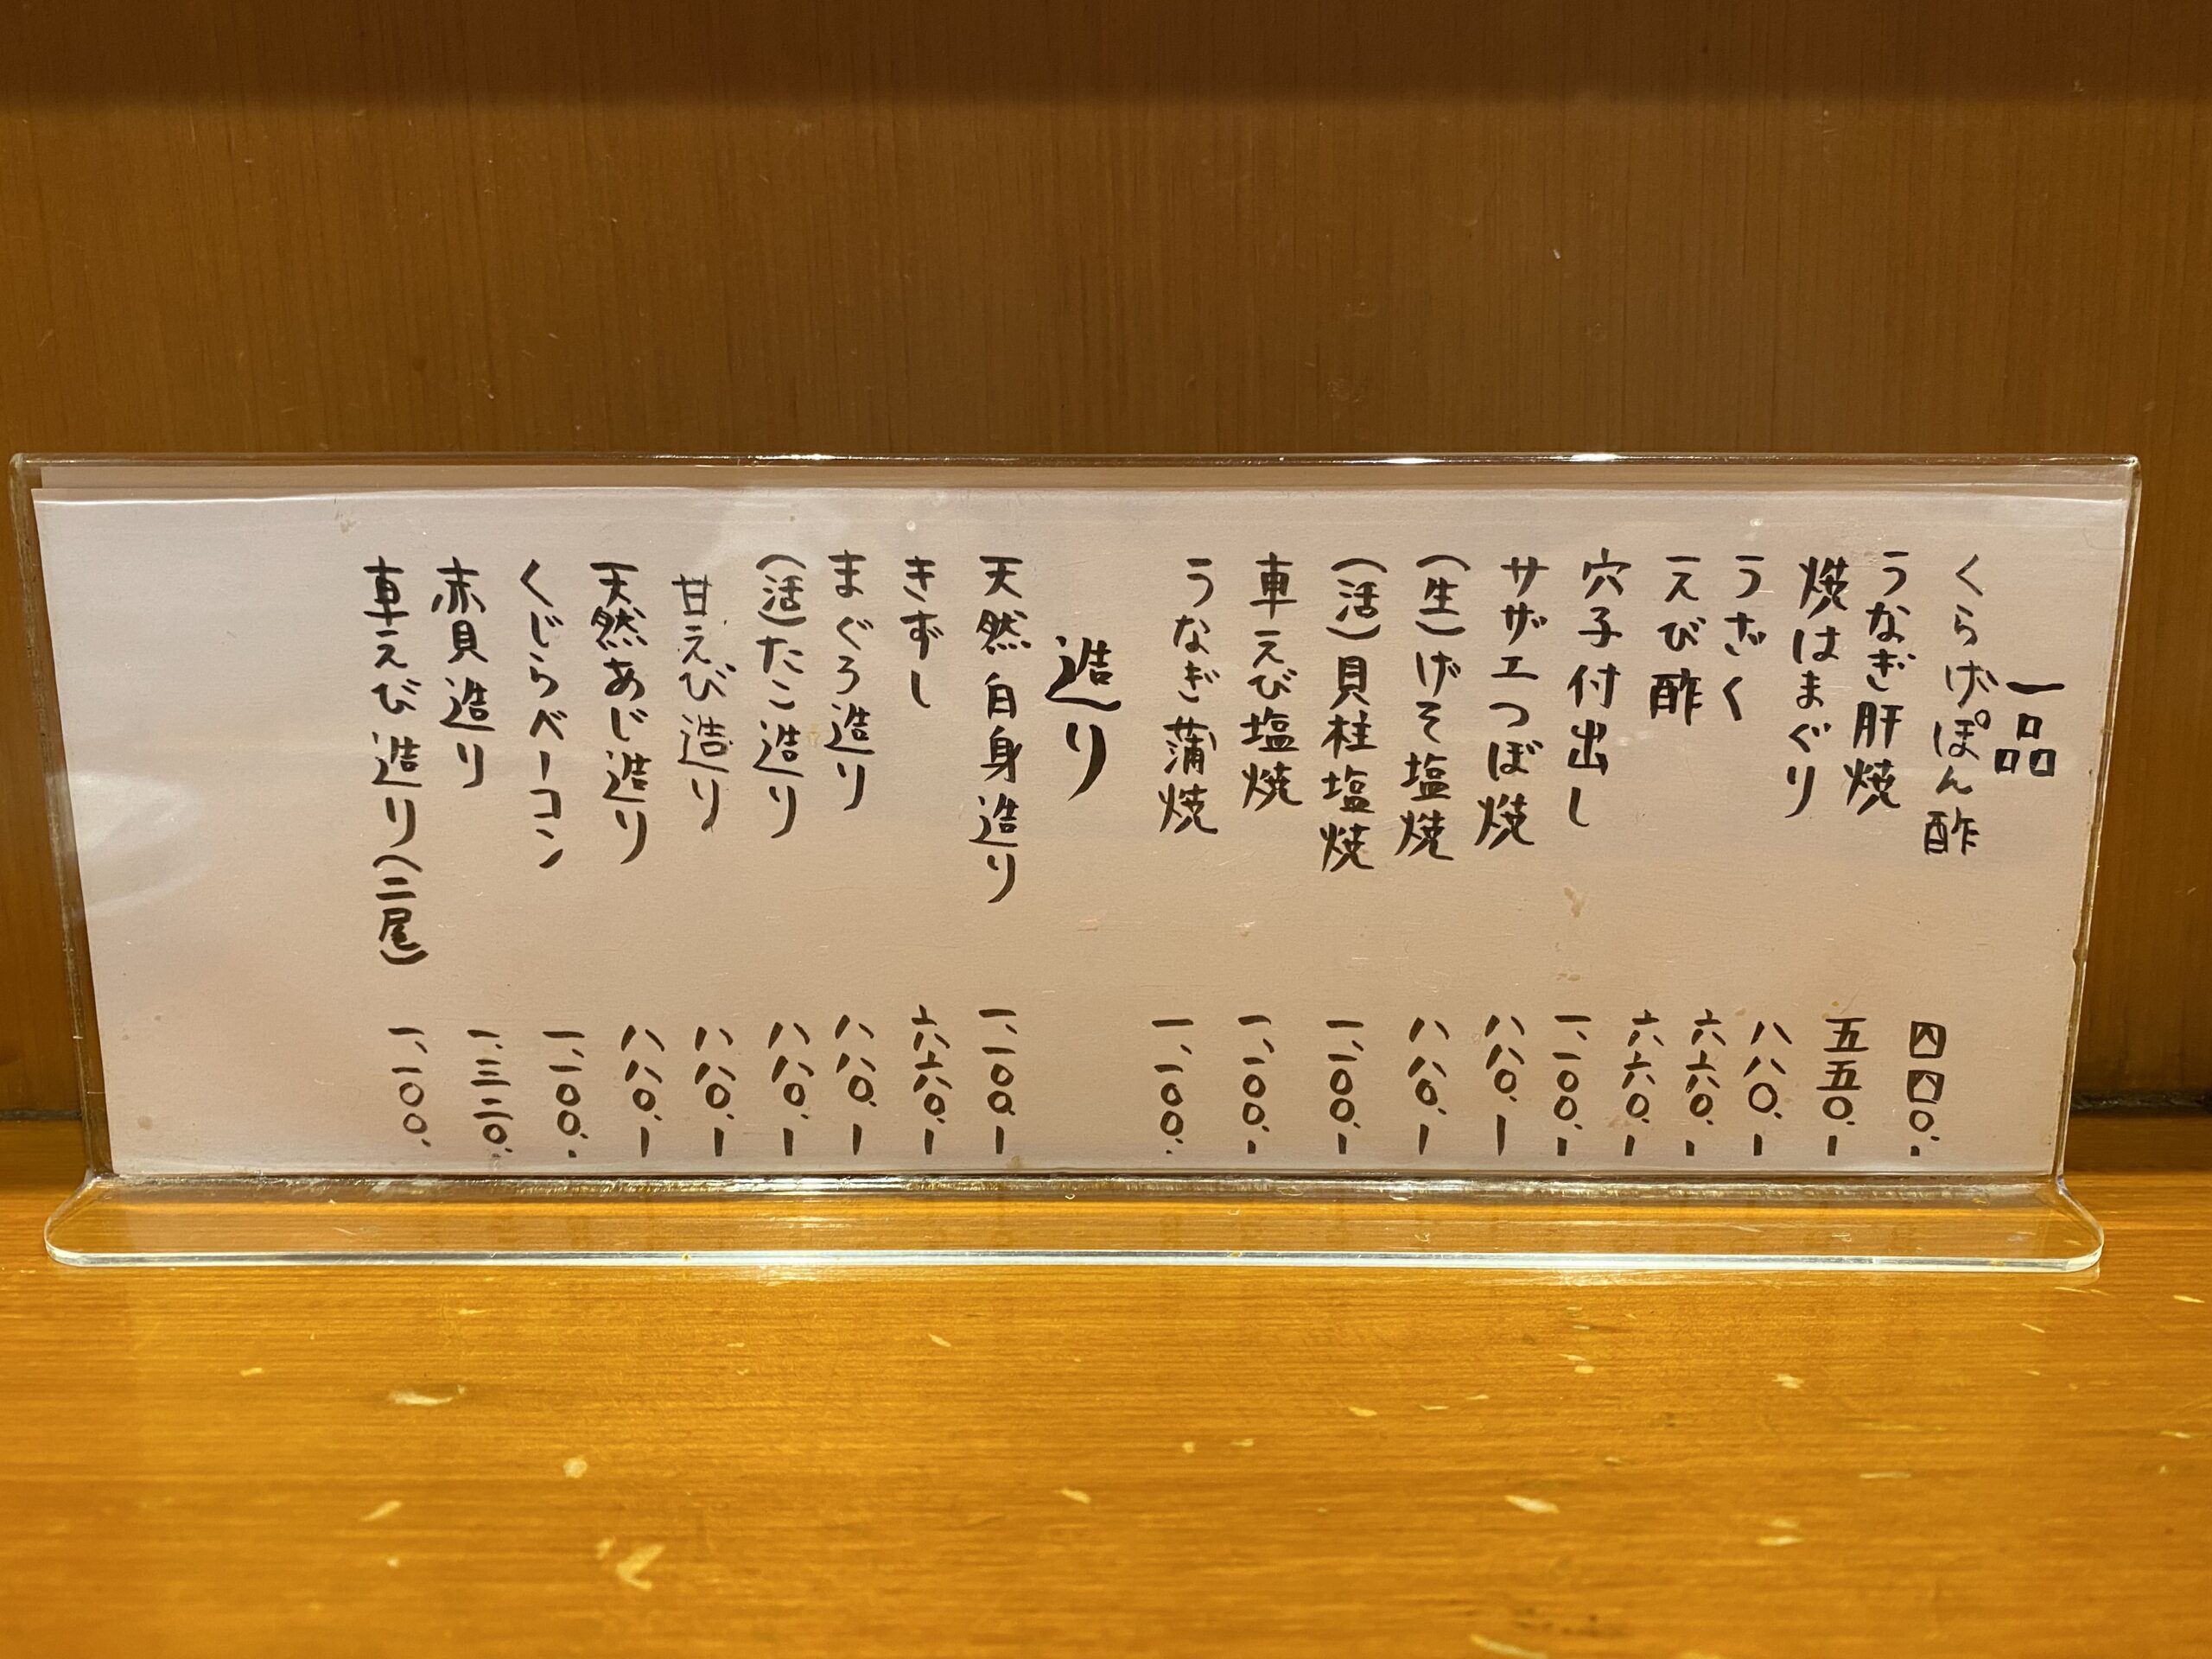 一品
くらげぽん酢 四四〇.-
うなぎ肝焼 五五〇.-
焼はまぐり 八八〇.-
うざく 六六〇.-
えび酢 六六〇.-
穴子付出し 一、一〇〇.-
サザエつぼ焼 八八〇.-
(生)げそ塩焼 八八〇.-
(活)貝柱塩焼 一、一〇〇.-
車えび塩焼 一、一〇〇.-
うなぎ蒲焼 一、一〇〇.
造り
天然白身造り 一、一〇〇.-
きずし 六六〇.-
まぐろ造り 八八〇.-
(活)たこ造り 八八〇.-
甘えび造り 八八〇.-
天然あじ造り 八八〇.-
くじらベーコン 一、一〇〇.-
赤貝造り 一、三二〇.-
車えび造り(二尾) 一、一〇〇.